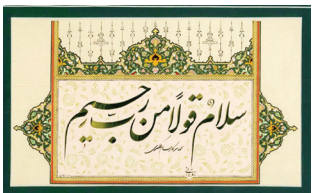 سلامٌ قولاً من ربّ رحیم